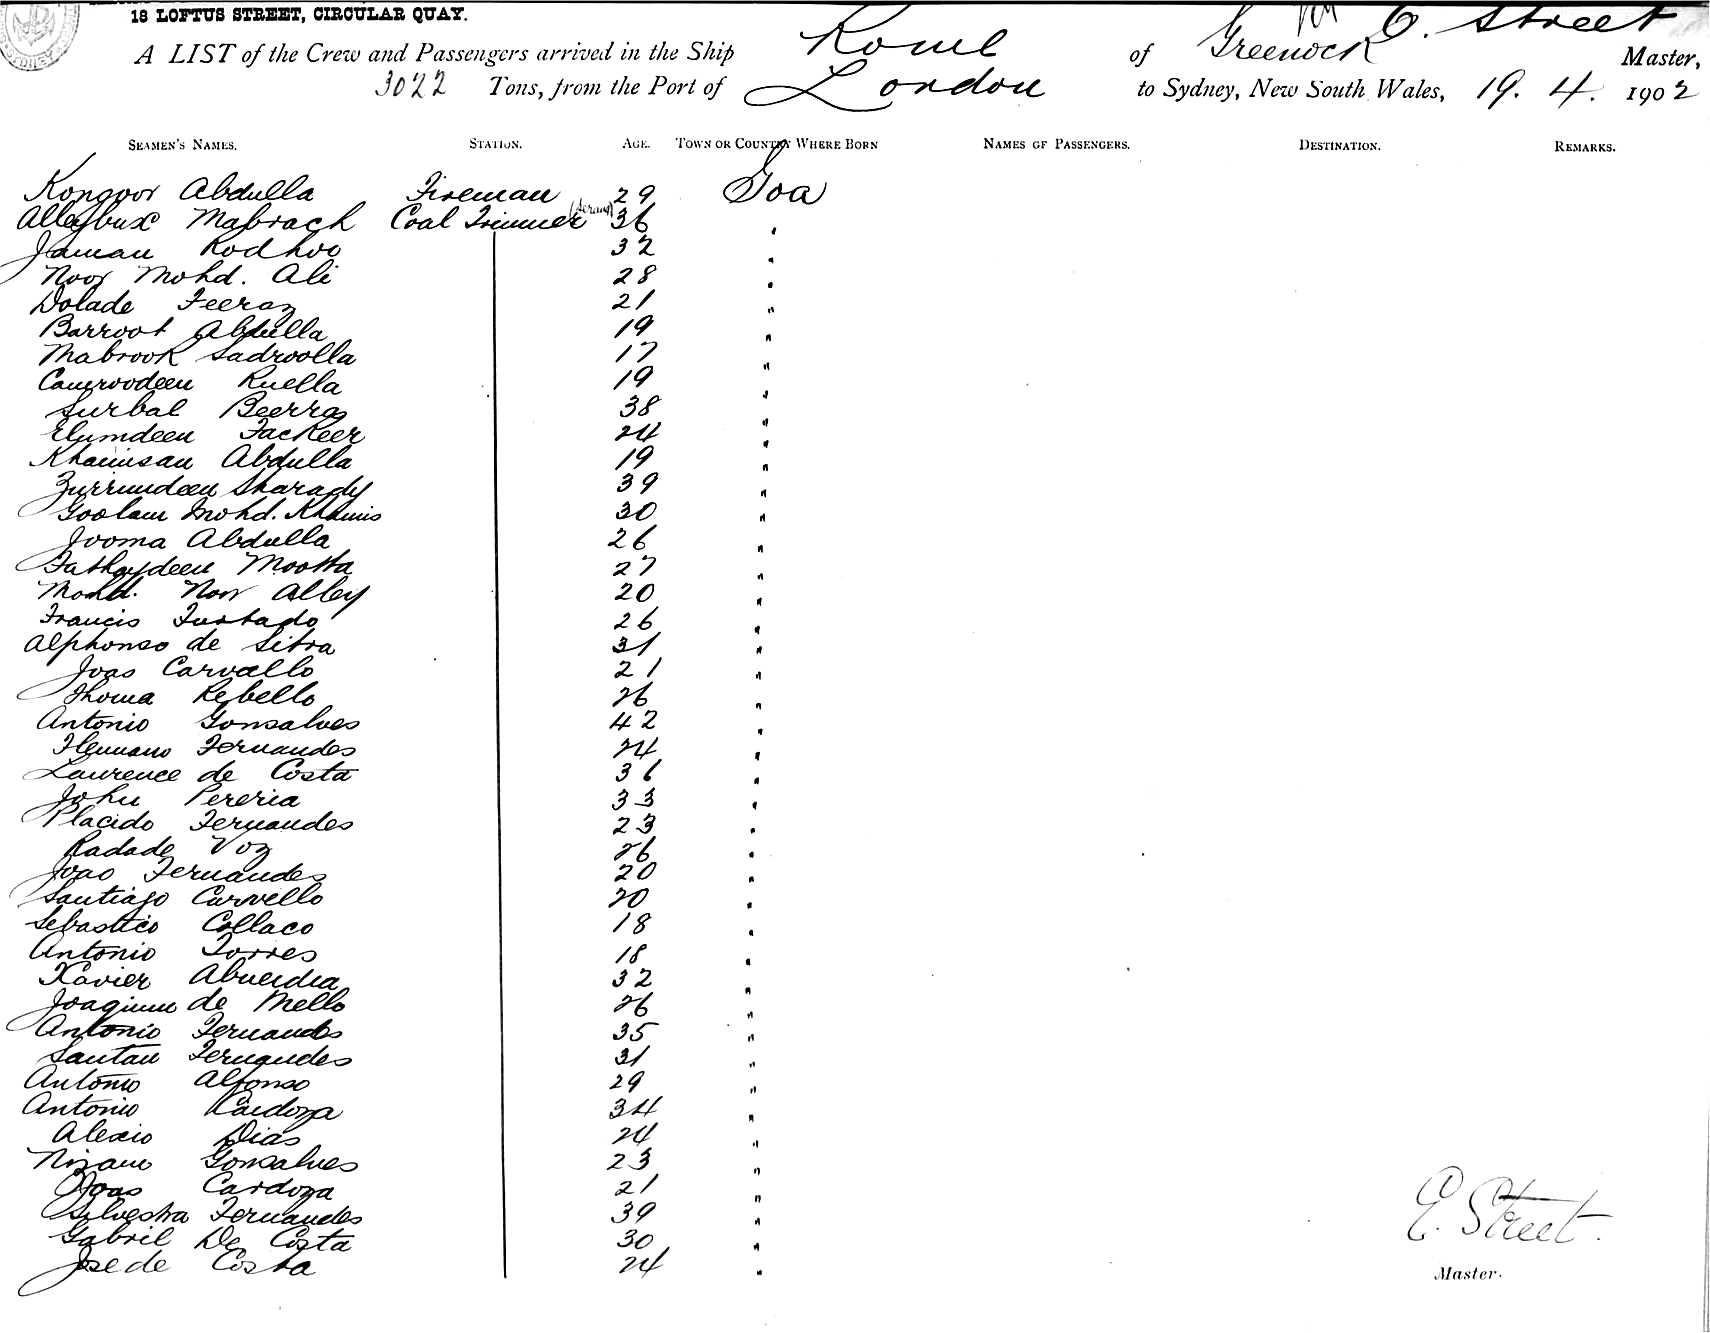 18 LOFTUS STREET, CIRCULAR QUAY.
A LIST of the Crew and Passengers arrived in the Ship Rome of Greenock E. Street Master,
3022 Tons, from the Port of London to Sydney, New South Wales, 19. 4. 1902
SEAMEN'S NAMES. STATION. AGE. TOWN OR COUNTRY WHERE BORN NAMES OF PASSENGERS. DESTINATION. REMARKS.
Kongoor Abdulla Fireman 29 Goa
Alleybux Mabrach Coal Trimmer (Serang) 36 "
Jaman Rodhoo 32 "
Noor Mohd. Ali 28 "
Dolade Feeroz 21 "
Barroot Abdulla 19 "
Mabrook Sadroolla 17 "
Camroodeen Ruella 19 "
Surbal Beerras 38 "
Elumdeen Fackeer 24 "
Khamisan Abdulla 19 "
Zurrumdeen Sharady 39 "
Goolam Mohd. Khamis 30 "
Jooma Abdulla 26 "
Fathaydeen Mootta 27 "
Mohd. Noor Alley 20 "
Francis Furtado 26 "
Alphonso de Silva 31 "
Joas Carvallo 21 "
Thoma Rebello 26 "
Antonio Gonsalves 42 "
Fernandes 24 "
Laurence de Costa 36 "
John Pereria 33 "
Placido Fernandes 23 "
Radade Voz 26 "
Joao Fernandes 20 "
Santiago Carvello 20 "
Sebastico Collaco 18 "
Antonio Torres 18 "
Xavier Abuerdia 32 "
Joaquim de Mello 26 "
Antonio Fernandes 35 "
Santan Fernandes 31 "
Antonio Alfonso 29 "
Antonio Cardoza 34 "
Alexio Dias 24 "
Nizam Gonsalves 23 "
Joas Cardoza 21 "
Silvestra Fernandes 39 "
Gabril De Costa 30 "
Jose de Costa 24 "
E. Street.
Master.